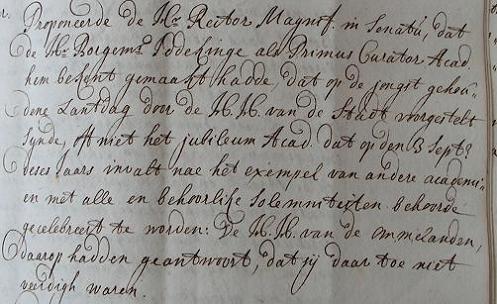 Proponeerde de Hr Rector Magnif. in Senatu, dat
de Hr Borgemr Toddinge als Primus Curator Acad.
hem bekent gemaakt hadde, dat op de jongst gehou-
dene Lantdag door de H.H. van de Stadt voorgestelt
synde, oft niet het jubileum Acad. dat op den 3 Septr
deses Jaars invalt nae het exempel van andere academi-
en met alle en behoorlike solemniteiten behoorde
gecelebreert te worden: De H.H. van de Ommelanden,
daarop hadden geantwoort, dat sij daar toe niet
veerdigh waren.